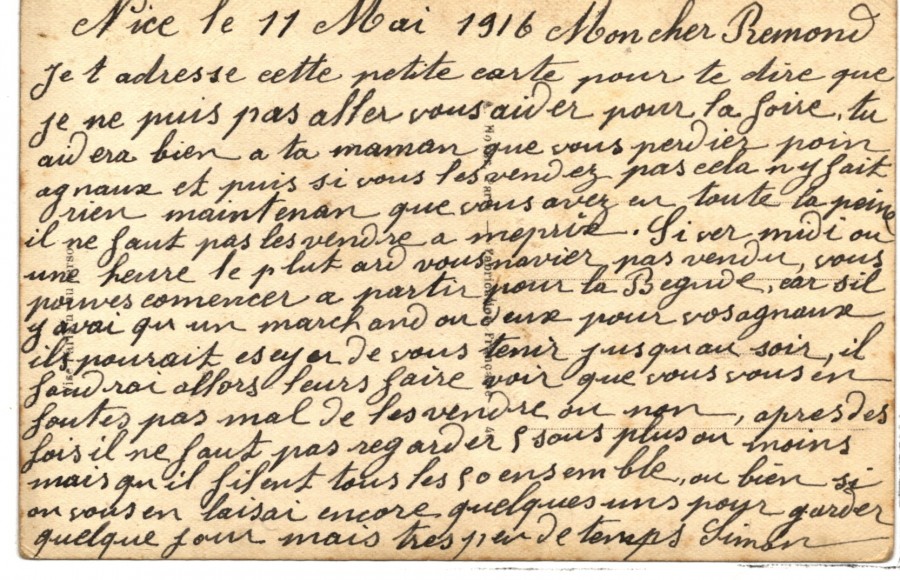 Nice le 11 Mai 1916 Mon cher Remond
Je t adresse cette petite carte pour te dire que
je ne puis pas aller vous aider pour la foire, tu
aidera bien a ta maman que vous perdiez poin
agnaux et puis si vous les vendez pas cela n y fait
rien maintenan que vous avez eu toute la peine
il ne faut pas les vendre a meprix. Si ver midi ou
une heure le plut ard vous navier pas vendu, vous
pouves comencer a partir pour la Begude, car sil
y avai qu un marchand ou deux pour vos agnaux
ils pourait eseyer de vous tenir jusquau soir, il
faudrai allors leurs faire voir que vous vous en
foutes pas mal de les vendre ou non, apres des
fois il ne faut pas regarder 5 sous plus ou moins
mais qu il filent tous les 50 ensemble, ou bien si
on vous en laisai encore quelques uns pour garder
quelque jour mais tres peu de temps Simon